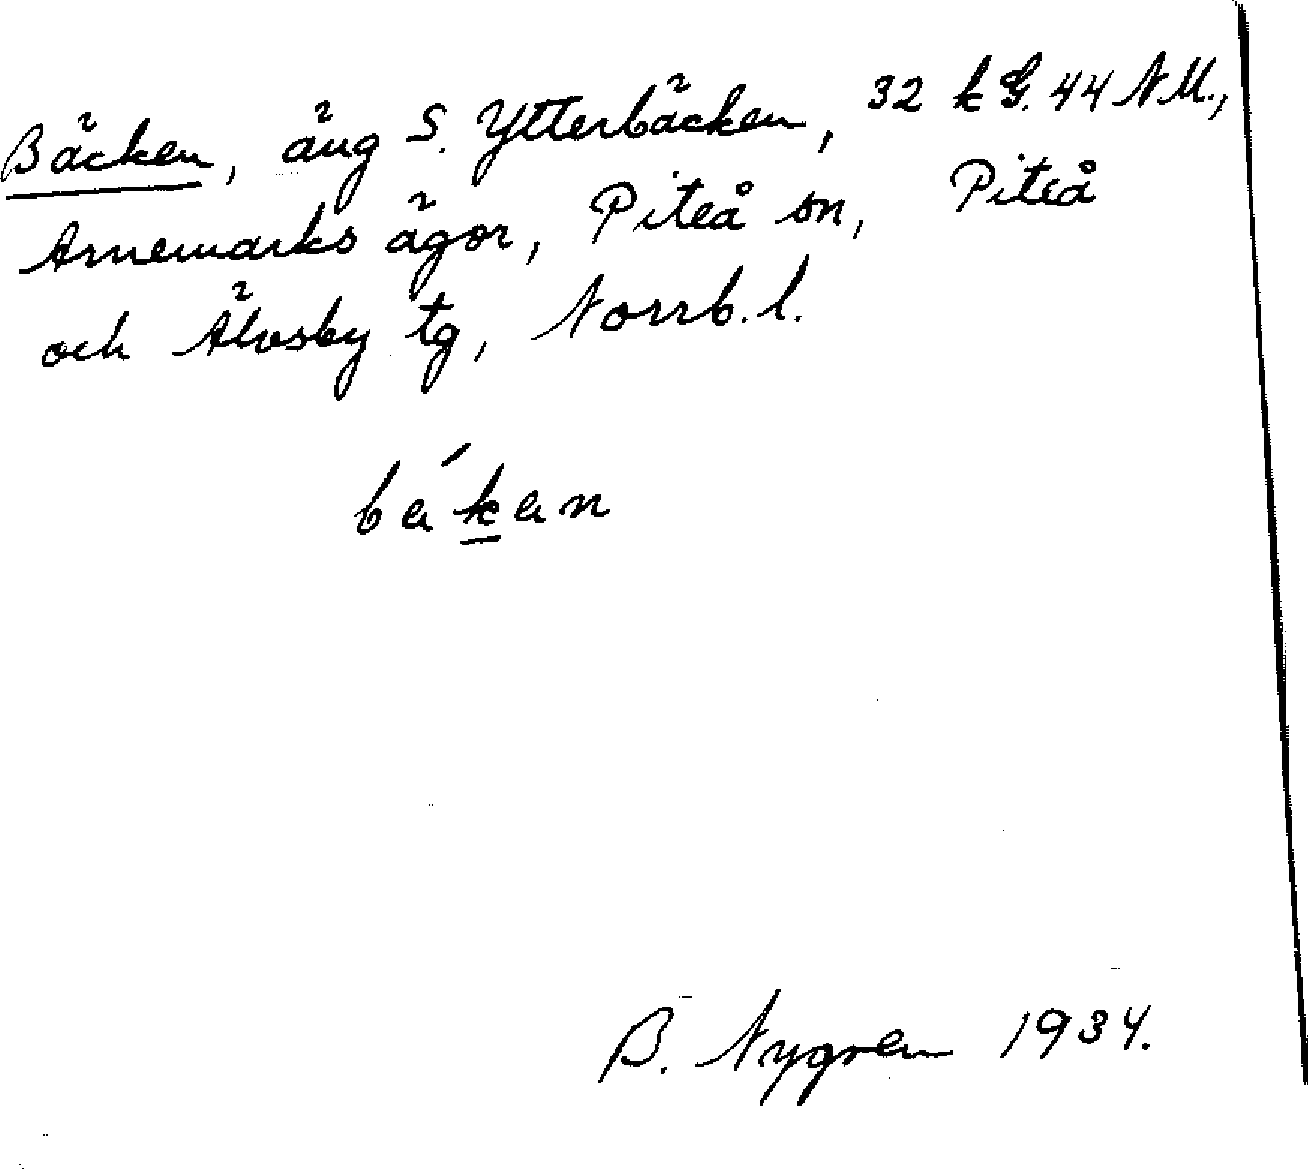 Bäcken, äng S. Ytterbäcken, 32 k G. 44 N M.,
Arnemarks ägor, Piteå sn, Piteå
och Älvsby tg, Norrb. l.
bákan
B. Nygren 1934.